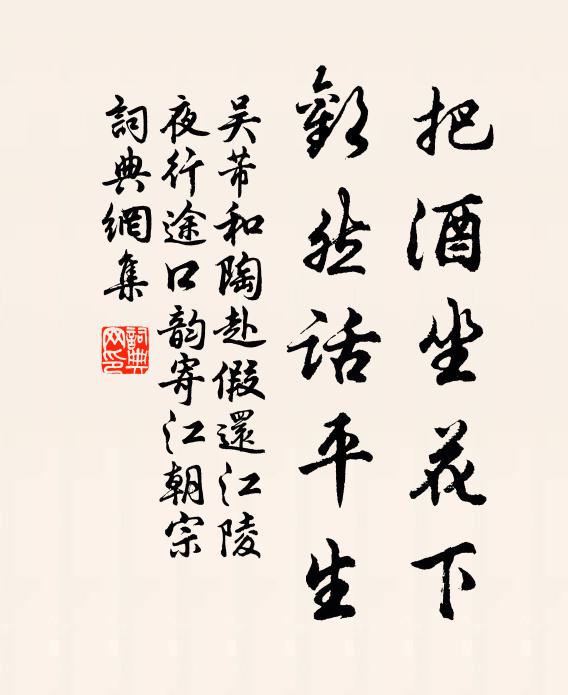 把酒坐花下
歡然話平生
吴芾和陶赴假還江陵
夜行途口韵寄江朝宗
詞典網集
詞典
网印